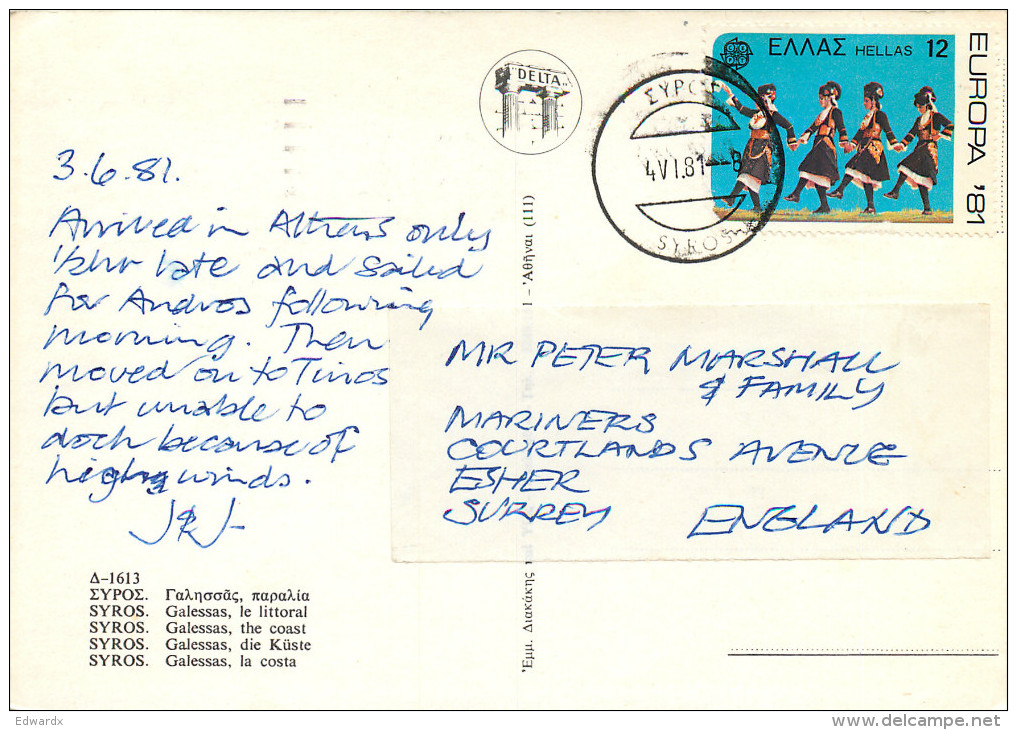 ΕΛΛΑΣ HELLAS 12
EUROPA '81
DELTA
ΣΥΡΟΣ
4 VI.81-8
SYROS
3.6.81.
Arrived in Athens only
1/2hr late and sailed
for Andros following
morning. Then
moved on to Tinos
but unable to
dock because of
high winds.
MR PETER MARSHALL
& FAMILY
MARINERS
COURTLANDS AVENUE
ESHER
SURREY ENGLAND
Δ-1613
ΣΥΡΟΣ. Γαλησσᾶς, παραλία
SYROS. Galessas, le littoral
SYROS. Galessas, the coast
SYROS. Galessas, die Küste
SYROS. Galessas, la costa
Ἐμμ. Διακάκης
1 - Ἀθῆναι (111)
Edwardx
www.delcampe.net